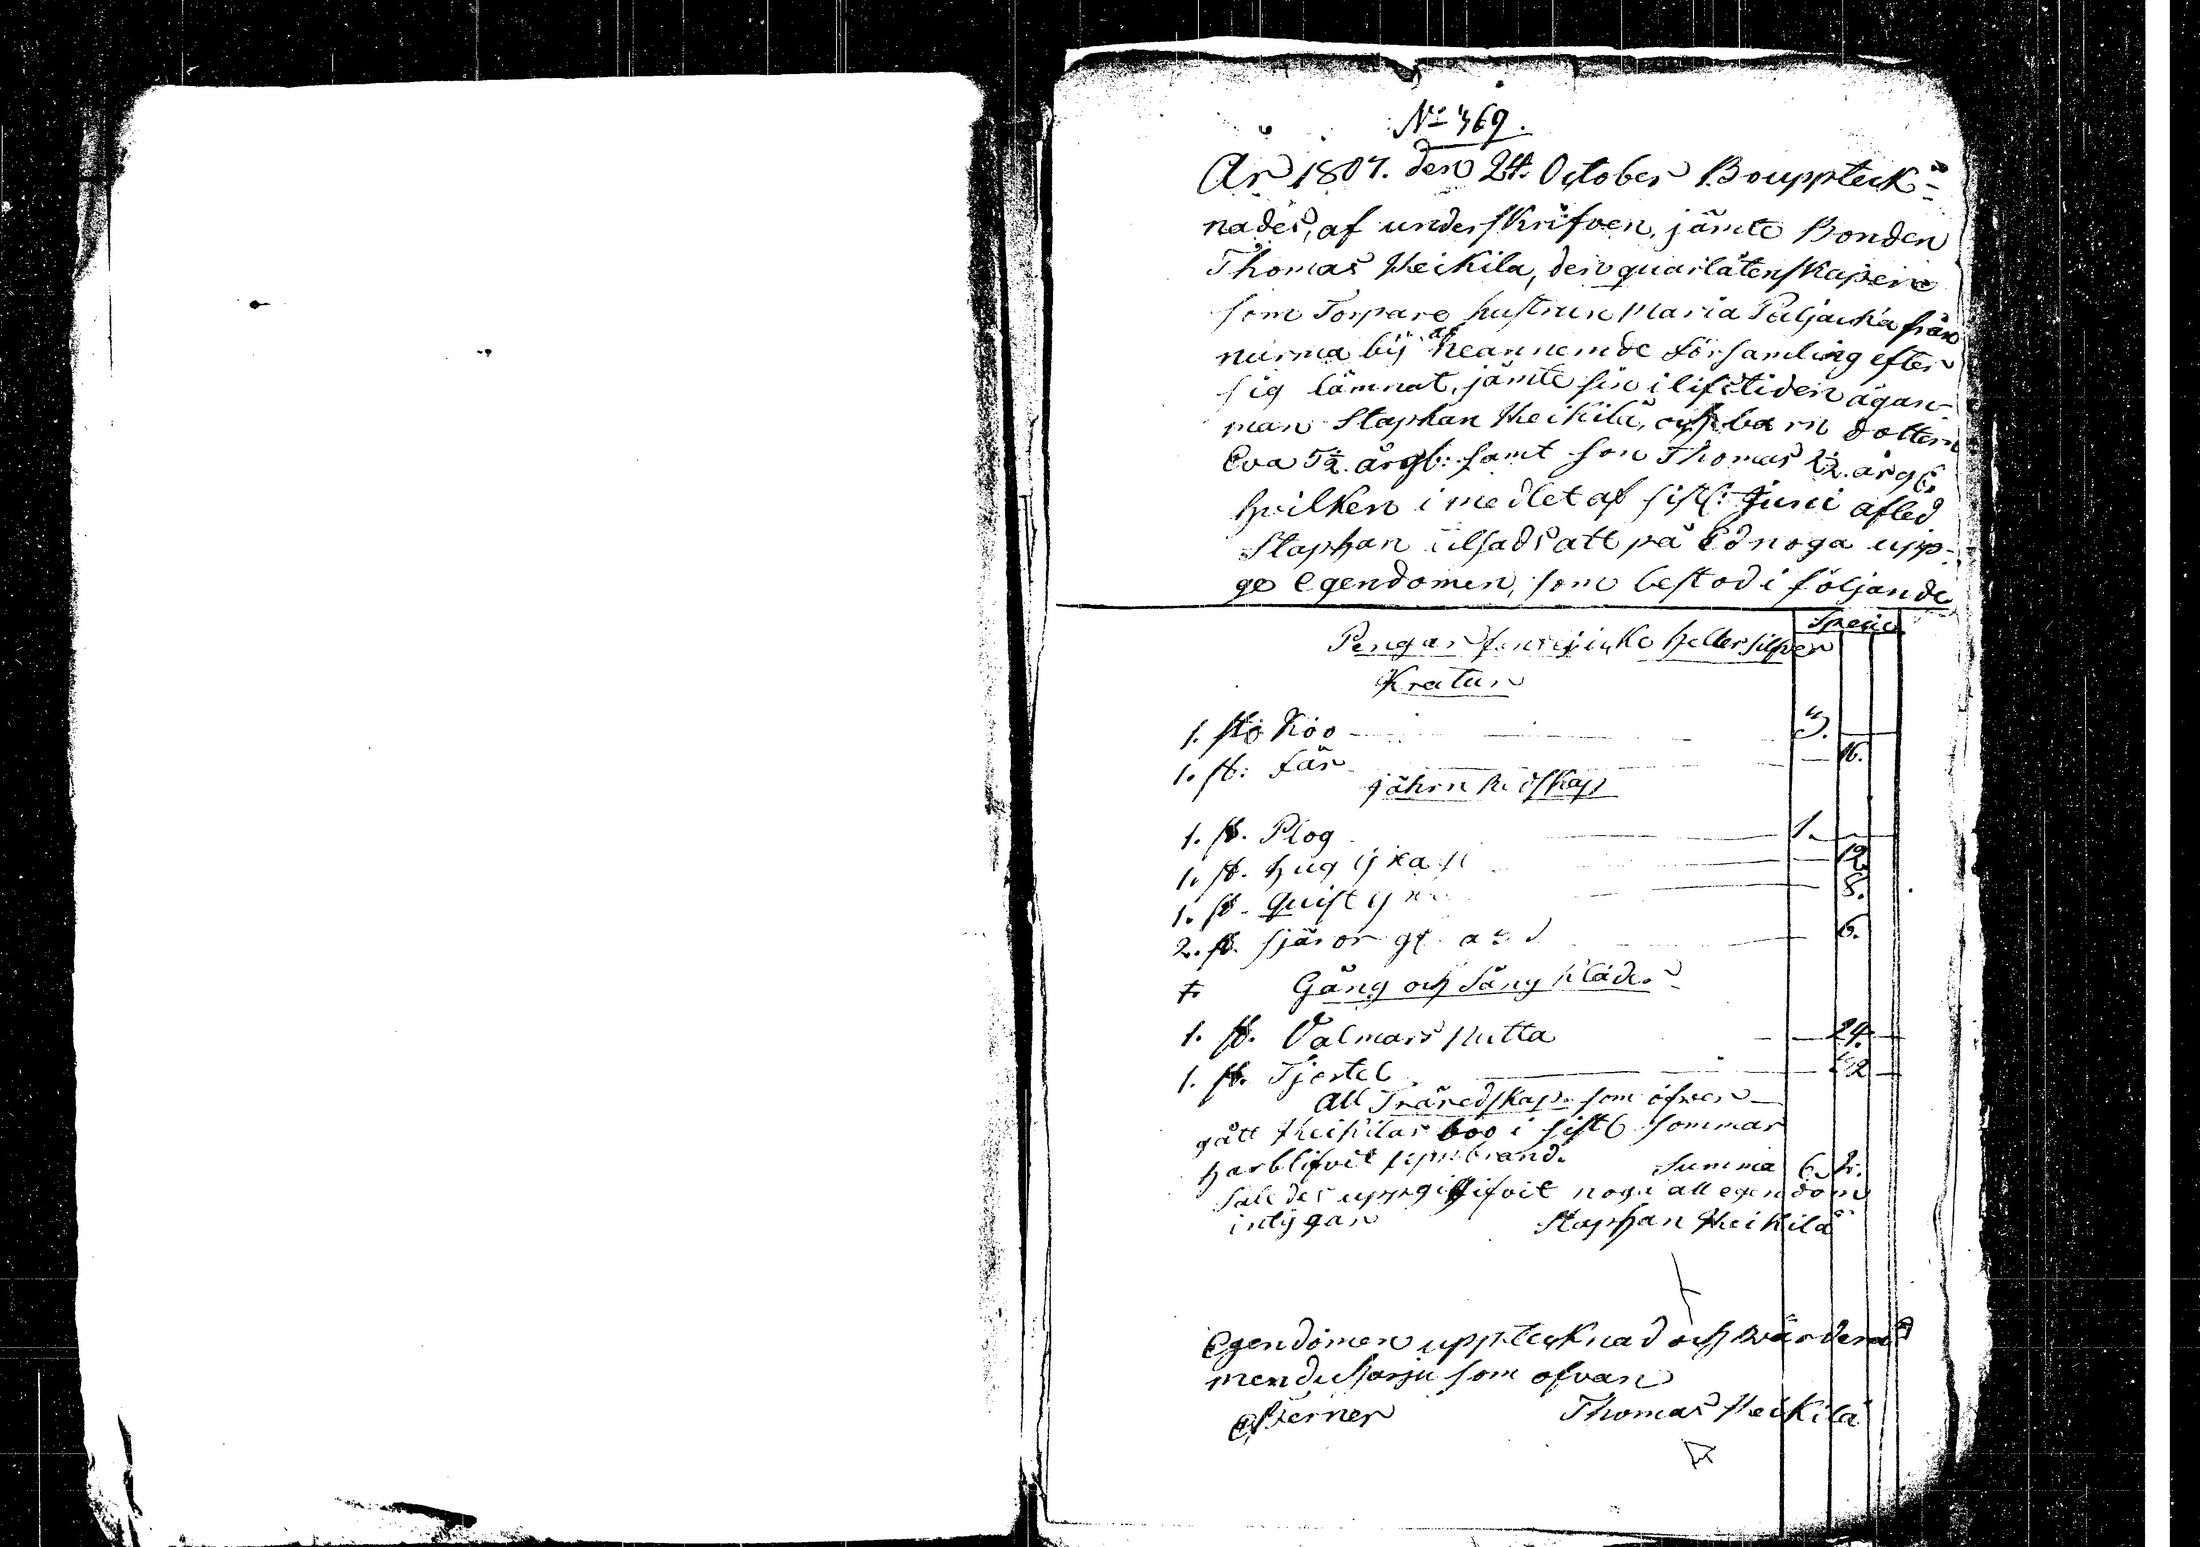 No 469.
År 1807. den 24. October Bouppteck=
nades, af underskrifven, jämte Bonden
Thomas Heikila, den quarlåtenskapen
som Torpare hustrun Maria Paljacka från
nurma bÿ af neannemde församling efter
sig lämnat, jämte sin i lifstiden ägan-
man Staphan Heikilä, och barn dottern
Eva 5½. årgl: samt son Thomas 2½. årgl.
hvilken i medlet af sistl: Juni afled
Staphan tilsades att på Ed noga upp-
ge egendomen, som bestod i följande
Specie
Pengar eller silfver
Kreatur
1. st. Koo 3.
1. st: Får 16.
jährn Redskap
1. st. Plog 1.
1. st. hug ÿxa 12.
1. st. quist ÿxa 8.
2. st. sjäror 6.
Gång och Säng kläder
1. st. Valmars 24.
1. st. Tjestel
all Träredskap som öfver
gått Heikilas boo i sistl sommar
har blifvit uppbränd. Summa 6
således uppgifvit noga all egendom
intÿgar Staphan Heikilä
Egendomen upptecknad och värderad
som ofvan
Thomas Heikilä